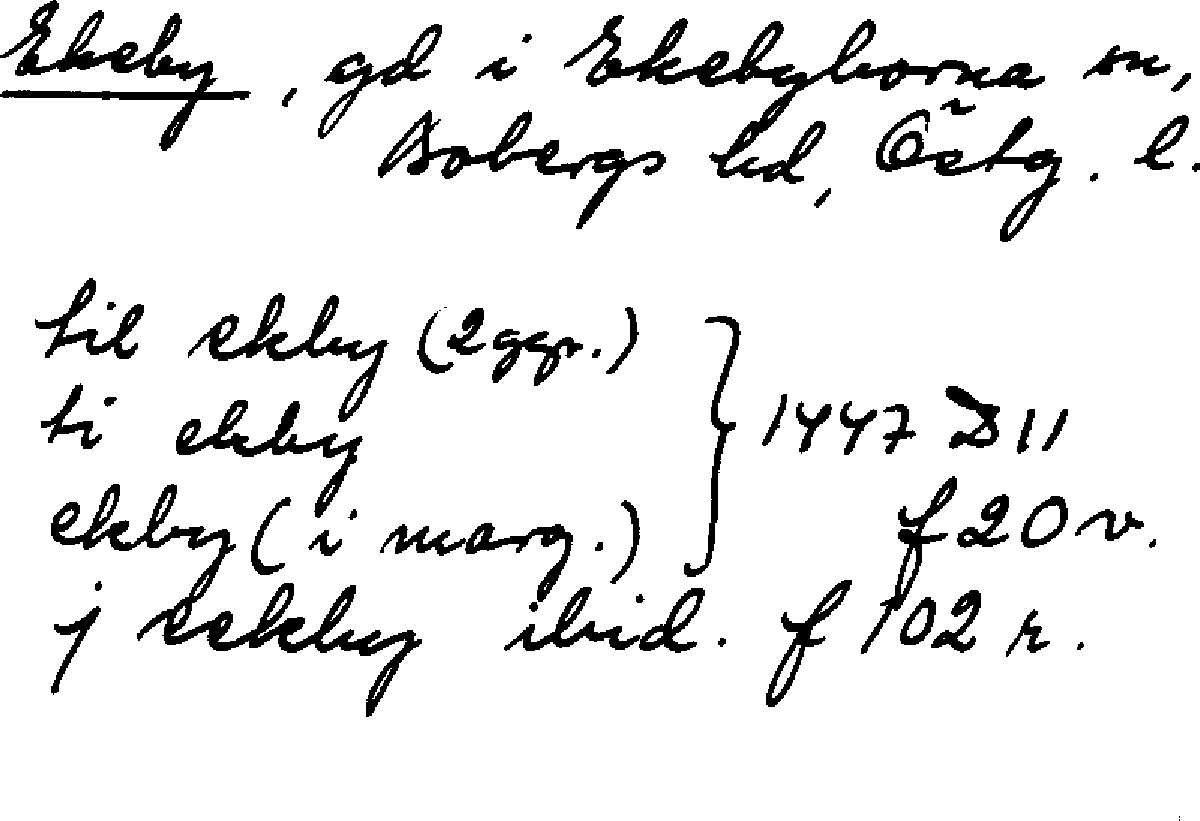 Ekeby, gd i Ekebyborna sn,
Bobergs hd, Östg. l.
til ekby (2 ggr.)
ti ekby
ekby (i marg.) } 1447 D 11 f 20 v.
j eekby ibid. f 102 r.